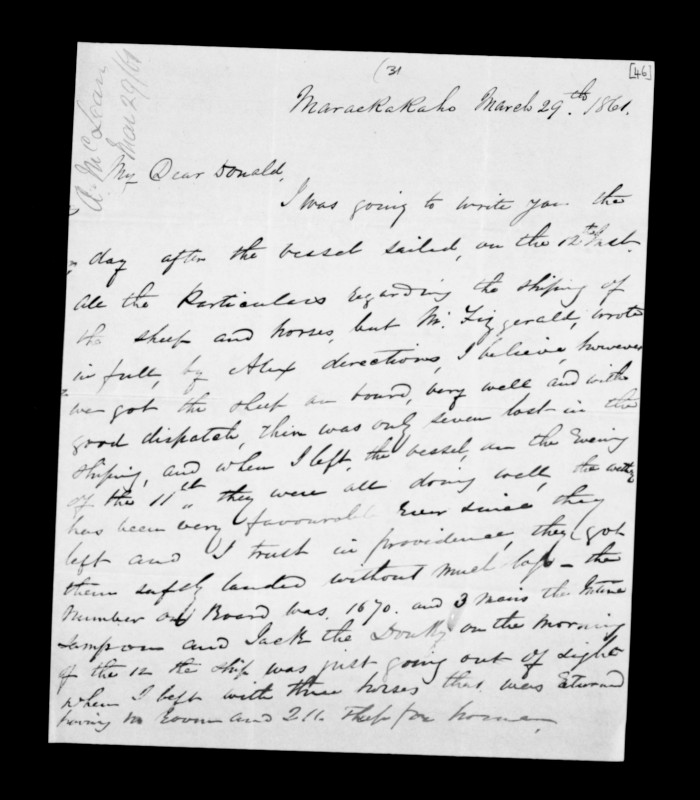 (31
[46]
A. McLean
Mar 29/61
Marackakaho March 29th. 1861.
My Dear Donald,
I was going to write you the
day after the vessel sailed, on the 12th Inst.
All the Particulars regarding the shiping of
the sheep and horses, but Mr. Fizgerald, wrote
in full, by Alex directions, I believe, however
we got the sheep on board, very well and with
good dispatch, thire was only seven lost in the
shiping, and when I left the vessel, on the Evening
of the 11th they were all doing well, the
has been very favourable Ever since they
left and I trust in providence, they got
them safely landed without much loss - the
Number on Board was. 1670. and 3 mairs the
Sampson and Jack the on the morning
of the 12 the ship was just going out of sight
when I left with three horses that was
having no Room and 211 sheep for home,